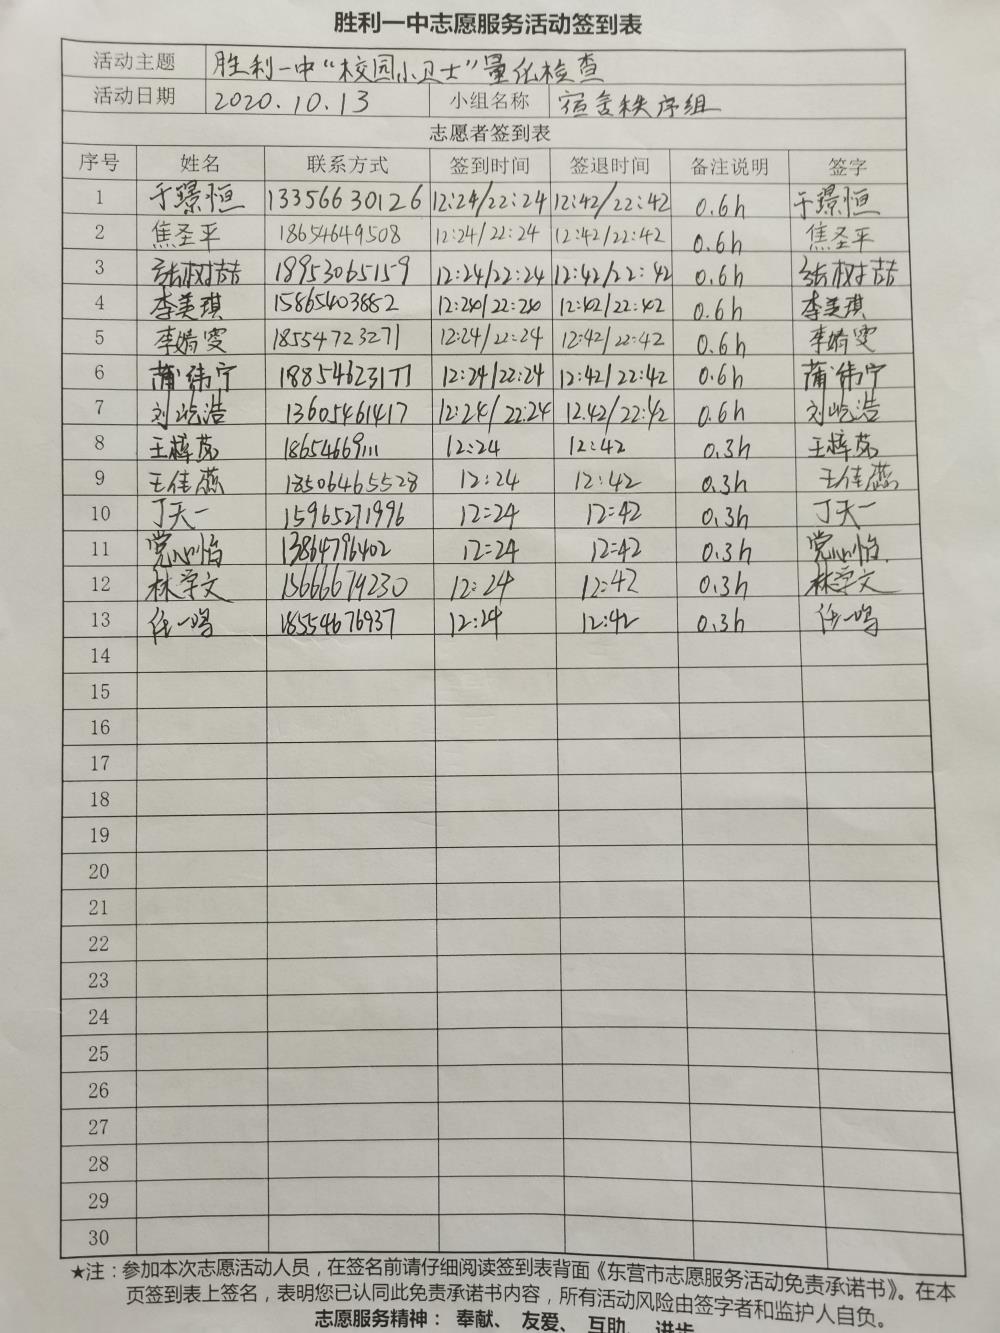 胜利一中志愿服务活动签到表
活动主题 胜利一中“校园小卫士”量化检查
活动日期 2020.10.13 小组名称 宿舍秩序组
志愿者签到表
序号 姓名 联系方式 签到时间 签退时间 备注说明 签字
1 于璟恒 13356630126 12:24/22:24 12:42/22:42 0.6h 于璟恒
2 焦圣平 18654649508 12:24/22:24 12:42/22:42 0.6h 焦圣平
3 张树喆 18953065159 12:24/22:24 12:42/22:42 0.6h 张树喆
4 李美琪 15865403852 12:24/22:24 12:42/22:42 0.6h 李美琪
5 李婧雯 18554723271 12:24/22:24 12:42/22:42 0.6h 李婧雯
6 蒲伟宁 18854623177 12:24/22:24 12:42/22:42 0.6h 蒲伟宁
7 刘屹浩 13605461417 12:24/22:24 12.42/22:42 0.6h 刘屹浩
8 王梓茹 18654669111 12:24 12:42 0.3h 王梓茹
9 王佳蕊 18506465528 12:24 12:42 0.3h 王佳蕊
10 丁天一 15965271996 12:24 12:42 0.3h 丁天一
11 党心怡 13864796402 12:24 12:42 0.3h 党心怡
12 林学文 15666679230 12:24 12:42 0.3h 林学文
13 任一鸣 18554676937 12:24 12:42 0.3h 任一鸣
14
15
16
17
18
19
20
21
22
23
24
25
26
27
28
29
30
★注：参加本次志愿活动人员，在签名前请仔细阅读签到表背面《东营市志愿服务活动免责承诺书》。在本
页签到表上签名，表明您已认同此免责承诺书内容，所有活动风险由签字者和监护人自负。
志愿服务精神： 奉献、 友爱、 互助、 进步